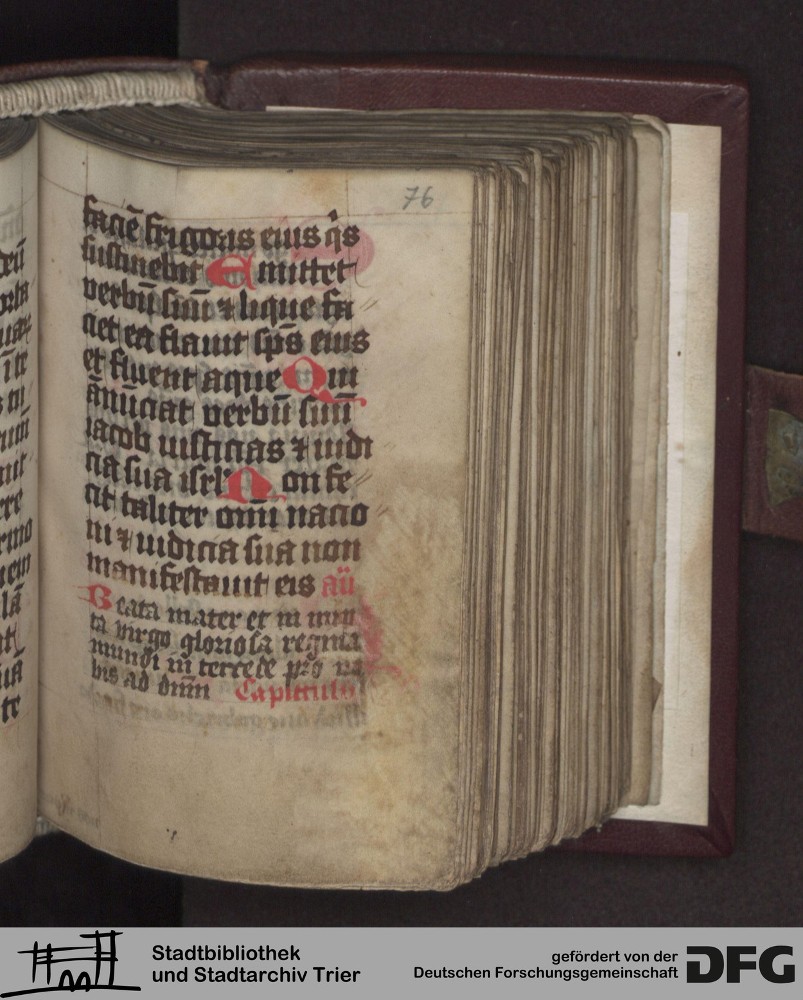 76
faciē frigoris eius q̇s
sustinebit Emittet
verbū suū ⁊ lique fa
ciet ea flauit sp̄s eius
et fluent aque Qui
ānūciat verbū suū
iacob iusticias ⁊ iudi
cia sua isrl' Non fe
cit taliter om̄i nacio
ni ⁊ iudicia sua non
manifestauit eis añ
Beata mater et in nup
ta virgo gloriosa regina
mundi in tercede pro no
bis ad dn̄m Capitulū
Stadtbibliothek
und Stadtarchiv Trier
gefördert von der
Deutschen Forschungsgemeinschaft
DFG